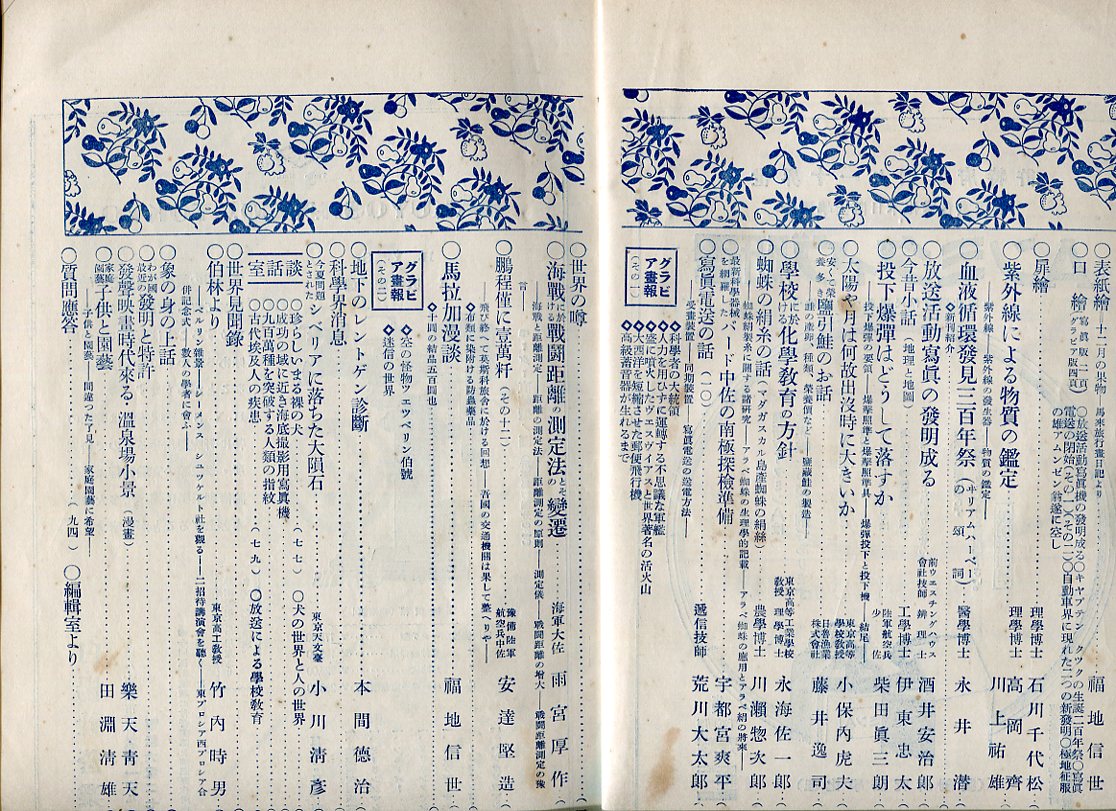 ○表紙繪―十二月の果物 馬來旅行畫日記より 福地信世
○口繪 寫眞版二頁 グラビア版四頁
○放送活動寫眞機の發明成る○キヤプテン クツクの生誕二百年祭○寫眞
電送の開始(その一)(その二)○自動車界に現れた二つの新發明○極地征服
の雄アムンゼン翁遂に空し
○扉繪 石川千代松
理學博士
○紫外線による物質の鑑定 理學博士 高岡齊
川上祐雄
―紫外線―紫外線の發生器―物質の鑑定―
○血液循環發見三百年祭(ウリアムハーベーの頌詞) 醫學博士 永井潜
◇新刊紹介
○放送活動寫眞の發明成る 前ウエスチングハウス會社技師 辨理士 酒井安治郎
○今昔小話(地理と地圖) 工學博士 伊東忠太
○投下爆彈はどうして落すか 陸軍航空兵少佐 柴田眞三朗
―投下爆彈の要領―爆擊照準と爆擊照準具―爆彈投下と投下機―結尾―
○太陽や月は何故出沒時に大きいか 東京高等學校教授 小保內虎夫
○安くて榮養多き鹽引鮭のお話 日魯漁業株式會社 藤井逸司
―鮭の產卵、種類、榮養價など―鹽藏鮭の製造―
○學校に於ける化學敎育の方針 東京高等工業學校敎授 理學博士 永海佐一郎
○蜘蛛の絹糸の話(マダガスカル島產蜘蛛の絹絲) 農學博士 川瀨惣次郎
―蜘蛛絹製糸に關する諸硏究―アラベ蜘蛛の生理學的記載―アラベ蜘蛛の應用とアラベ絹の將來―
○最新科學器械を網羅したバード中佐の南極探檢準備 宇都宮爽平
○寫眞電送の話(一〇) 遞信技師 荒川大太郎
―受畫裝置―同期裝置―寫眞電送の送電方法―
グラビア畫報(その一)
◆科學者の大統領
◆人力を用ひずに運轉する不思議な軍艦
◆盛に噴火したヴエスヴイアスと世界著名の活火山
◆大西洋を短縮させた郵便飛行機
◆高級蓄音器が生れるまで
○世界の噂
○海戰に於ける戰鬪距離の測定法とその變遷 海軍大佐 雨宮厚作
―海戰と距離測定―距離の測定法―距離測定の原則 測定儀―戰鬪距離の增大―戰鬪距離測定の豫
言―
○鵬程僅に壹萬粁(その十二) 豫備陸軍航空兵中佐 安達堅造
―飛び終へて莫斯科旅舍に於ける回想―吾國の交通機關は果して整へりや―
◇布類に染附ける防蟲藥品
○馬拉加漫談 福地信世
◇十間の結晶五百間也
グラビア畫報(その二)
◇空の怪物ツエツペリン伯號
◇迷信の世界
○地下のレントゲン診斷 本間德治
○科學界消息
○今夏問題とされたシベリアに落ちた大隕石 東京天文臺 小川淸彥
談話室
○珍らしいまる裸の犬(七七) ○犬の世界と人の世界
○成功の域に近き海底撮影用寫眞機
○九百萬種を突破する人類の指紋
○古代埃及人の疾患(七九) ○放送による學校敎育
○世界見聞錄
○伯林より 東京高工敎授 竹內時男
―ベルリン雜景―シーメンス シユツケルト社を觀る―二招待講演會を聽く―東プロシア西プロシア合
併記念式―數人の學者に會ふ―
○象の身の上話
○わが國最近の發明と特許
○發聲映畫時代來る・溫泉場小景(漫畫) 樂天靑天
○家庭園藝子供と園藝 田淵淸雄
―子供と園藝―間違つた了見 家庭園藝に希望―
○質問應答(九四) ○編輯室より